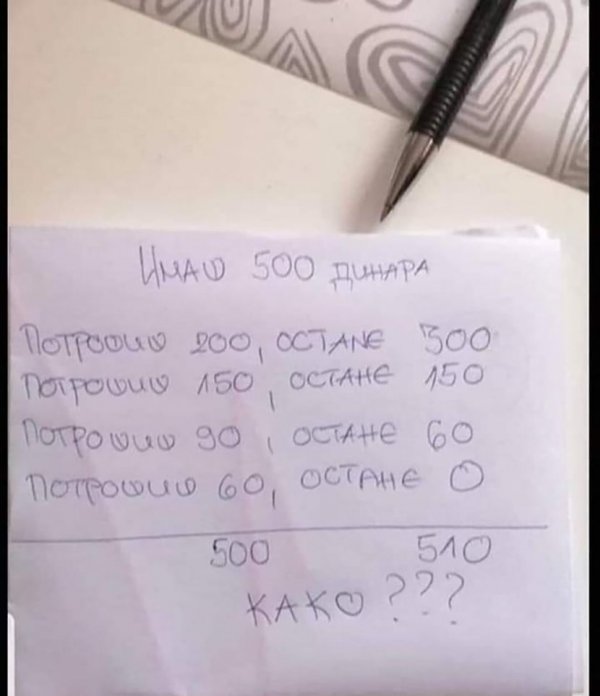 Имаш 500 динара
Потрошиш 200, остане 300
Потрошиш 150, остане 150
Потрошиш 90, остане 60
Потрошиш 60, остане 0
500 510
Како ???